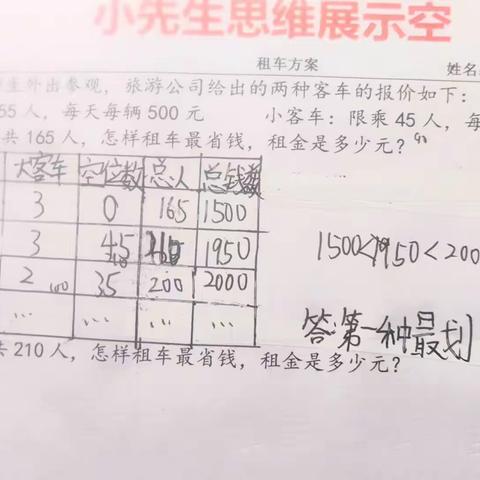 小先生思维展示空
租车方案 姓名
外出参观，旅游公司给出的两种客车的报价如下：
55 人，每天每辆 500 元 小客车：限乘 45 人，每
共 165 人，怎样租车最省钱，租金是多少元？
大客车 空位数 总人 总钱数
3 0 165 1500
3 45 1950
2 35 200 2000
... ... ... ...
1500<1950<200
答:第一种最划
共 210 人，怎样租车最省钱，租金是多少元？